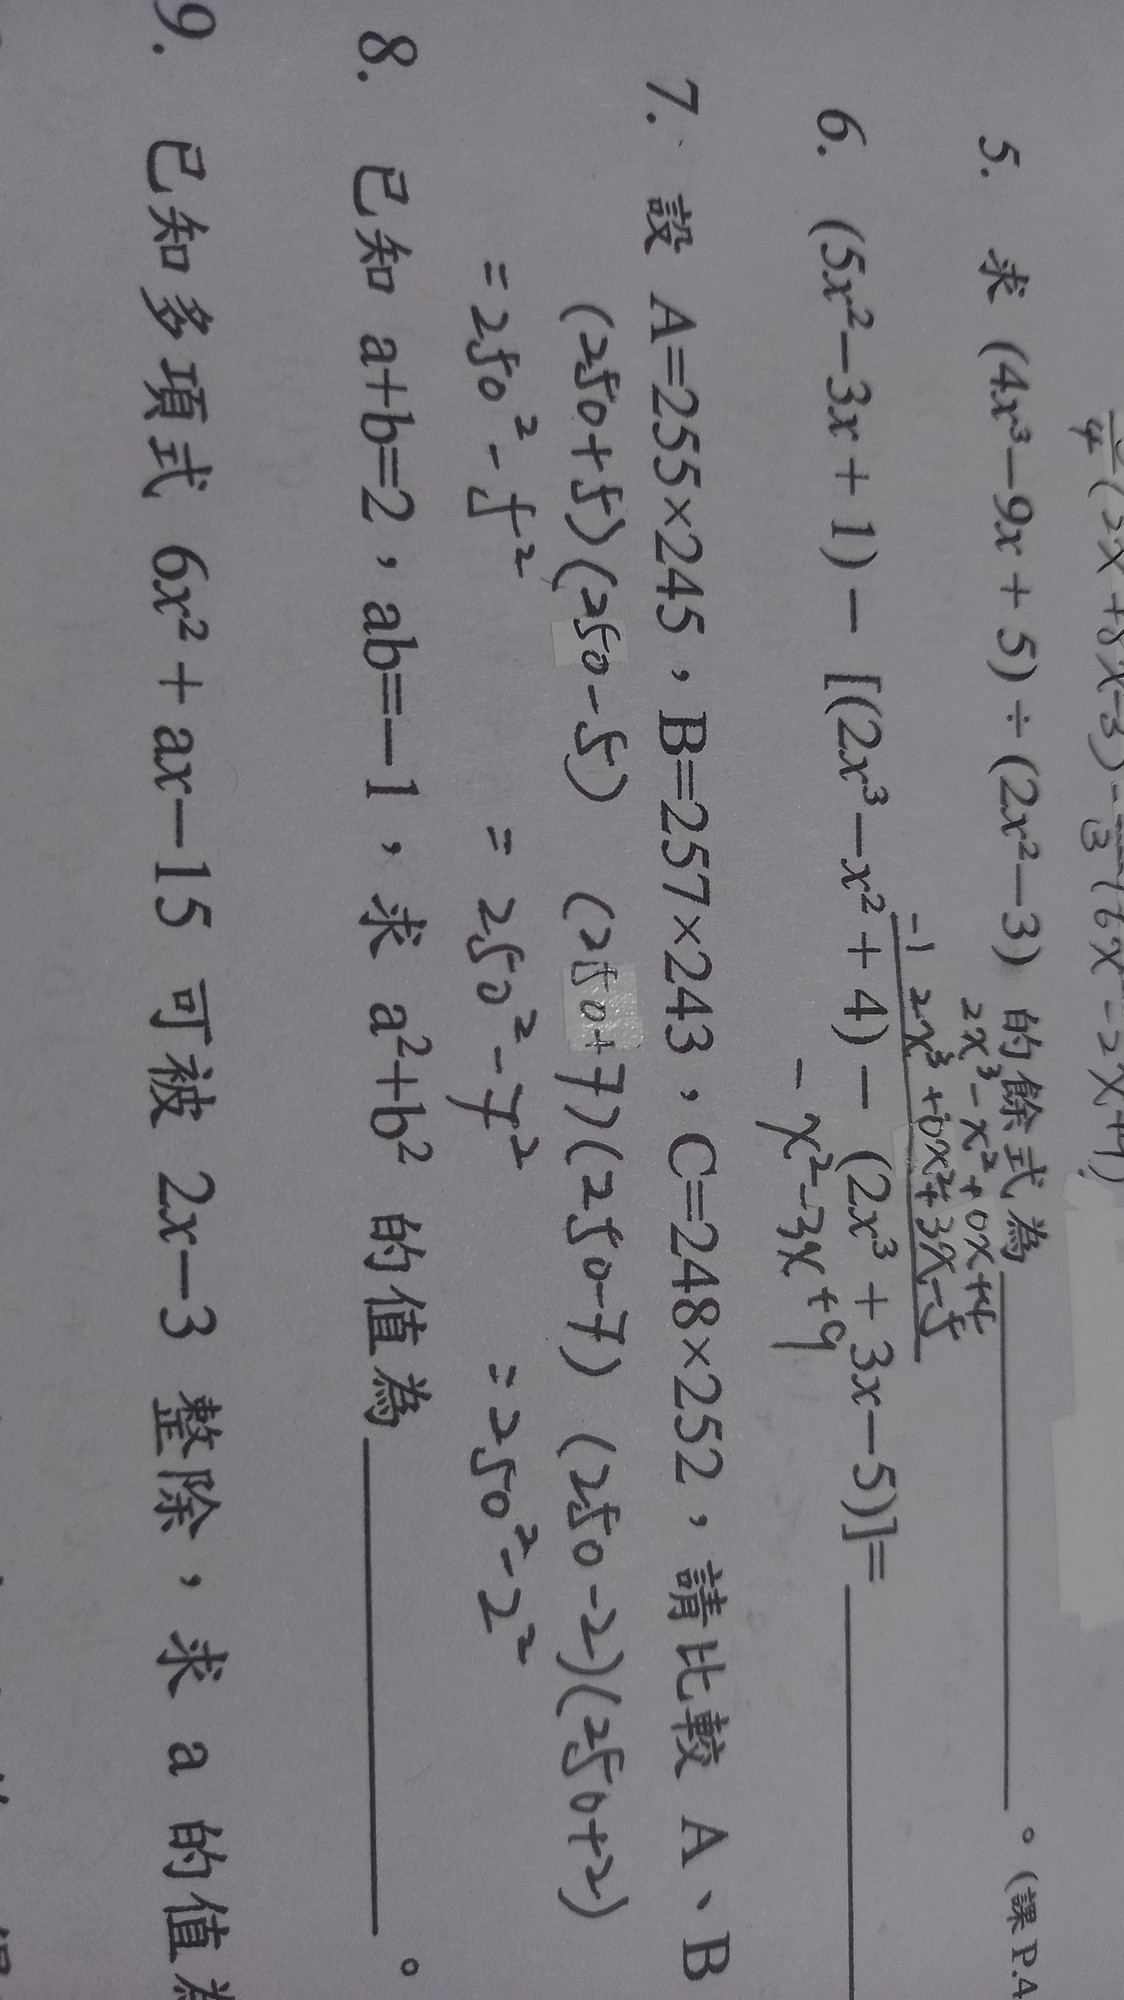 5. 求 (4x³－9x＋5)÷(2x²－3) 的餘式為＿＿＿＿。(課 P.4
2x³－x²＋0x＋4
－) 2x³＋0x²＋3x－5
6. (5x²－3x＋1)－[(2x³－x²＋4)－(2x³＋3x－5)]=＿＿＿＿
－x²－3x＋9
7. 設 A=255×245，B=257×243，C=248×252，請比較 A、B
(250+5)(250-5) (250+7)(250-7) (250-2)(250+2)
=250²-5² =250²-7² =250²-2²
8. 已知 a+b=2，ab=－1，求 a²+b² 的值為＿＿＿＿。
9. 已知多項式 6x²＋ax－15 可被 2x－3 整除，求 a 的值為